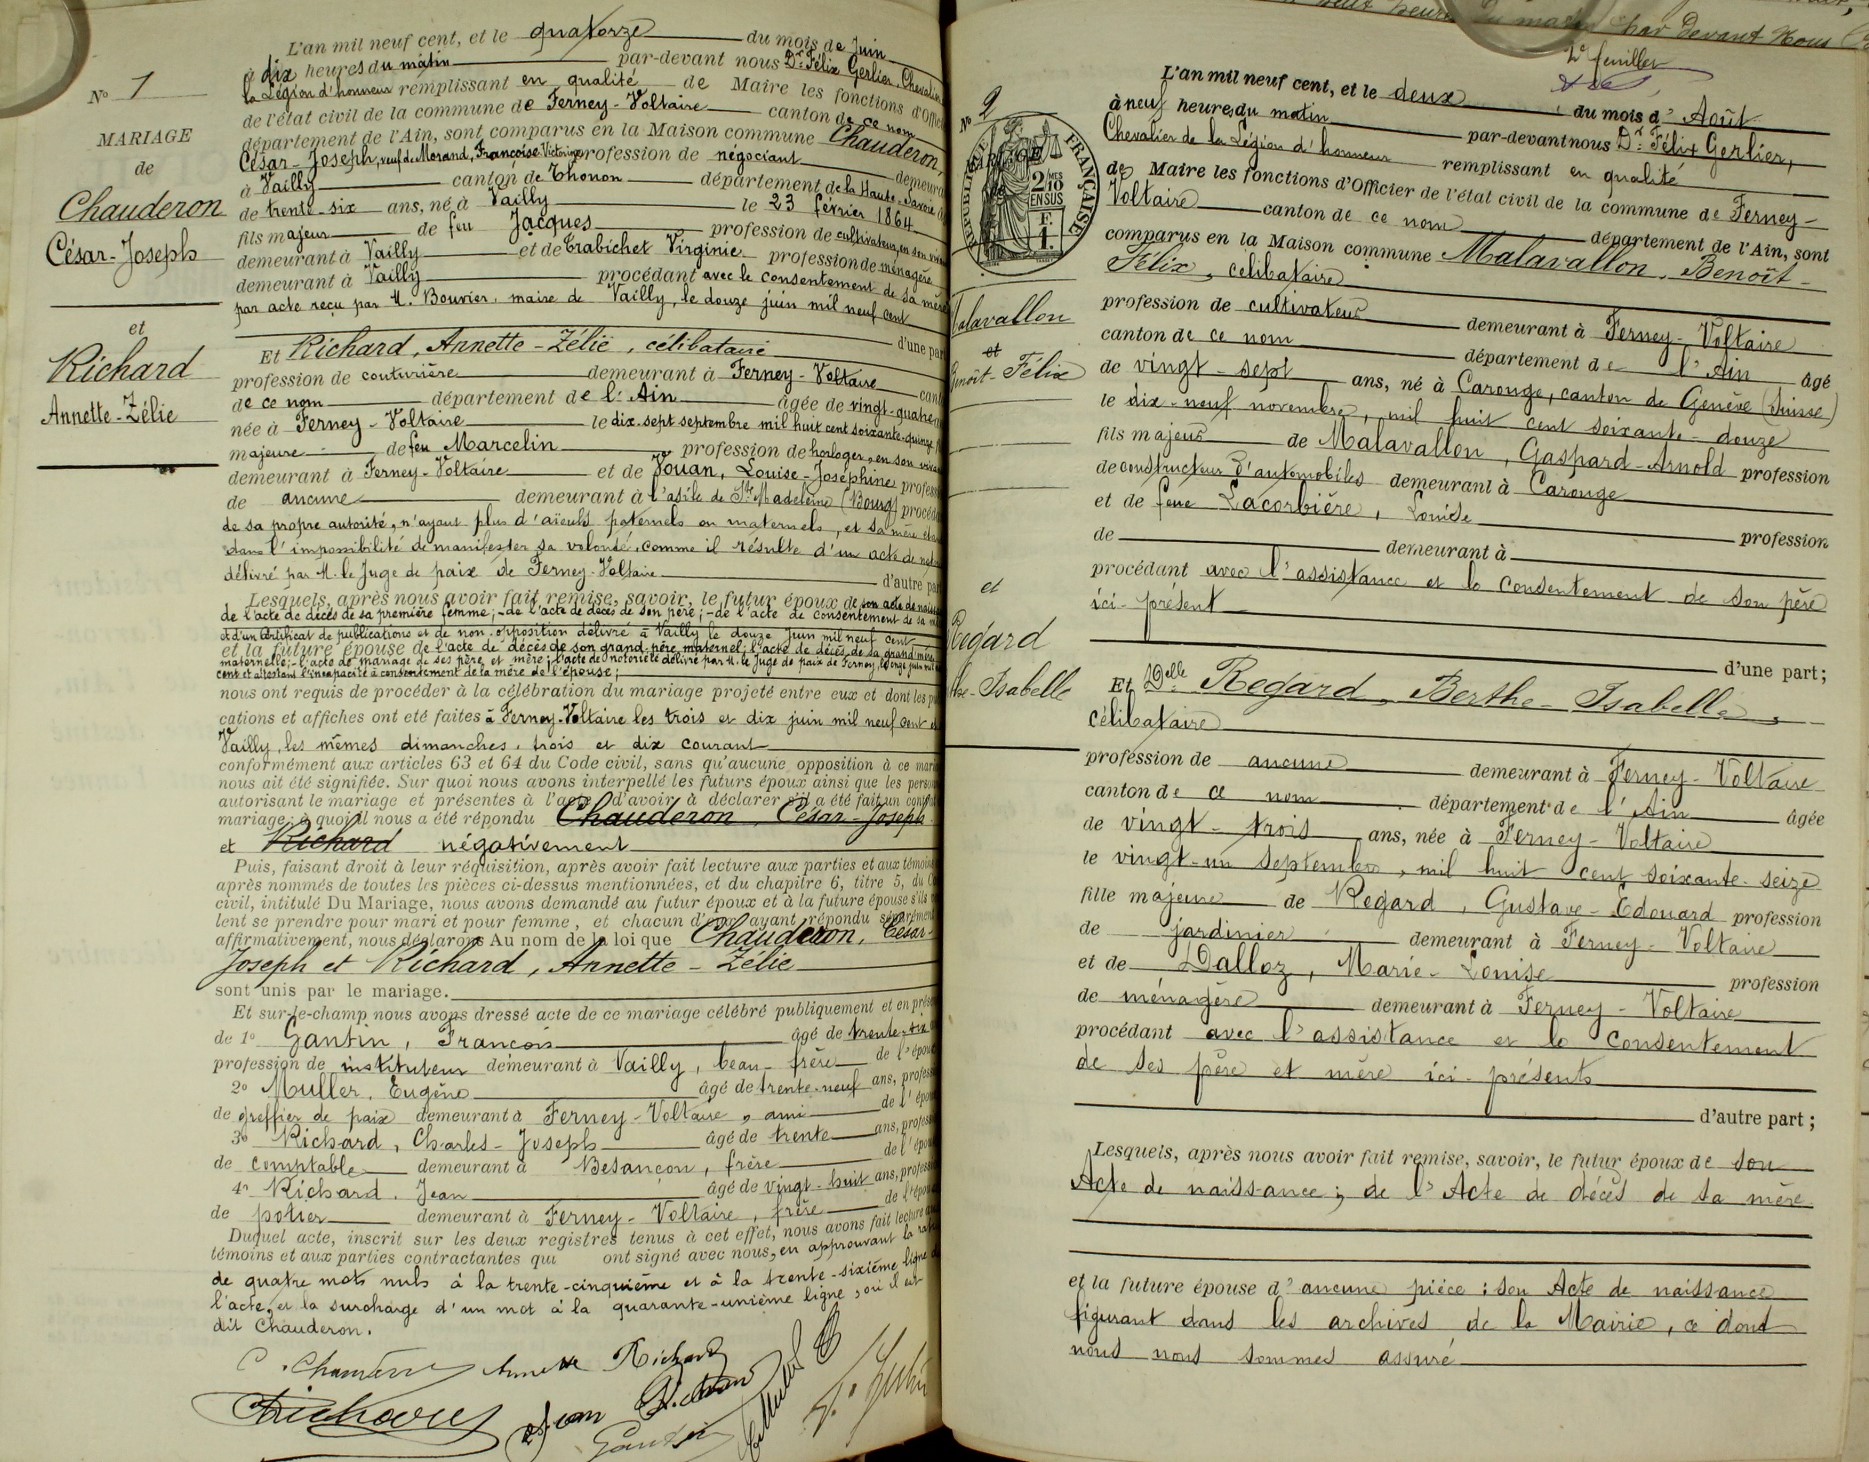 L'an mil neuf cent, et le quatorze du mois de Juin
à dix heures du matin par-devant nous Dr Félix Gerlier, Chevalier
la Légion d'honneur remplissant en qualité de Maire les fonctions d'Offic
de l'état civil de la commune de Ferney-Voltaire canton de ce nom
département de l'Ain, sont comparus en la Maison commune Chauderon,
César-Joseph, veuf de Morand, Françoise Victorine profession de négociant demeura
à Vailly canton de Thonon département de la Haute-Savoie
de trente-six ans, né à Vailly le 23 février 1864
fils majeur de feu Jacques profession de cultivateur, en son viva
demeurant à Vailly et de Trabichet Virginie profession de ménagère
demeurant à Vailly procédant avec le consentement de sa mère
par acte reçu par M. Bouvier, maire de Vailly, le douze juin mil neuf cent
d'une par
Et Richard, Annette-Zélie, célibataire
profession de couturière demeurant à Ferney-Voltaire cant
de ce nom département de l'Ain âgée de vingt-quatre
née à Ferney-Voltaire le dix-sept septembre mil huit cent soixante-quinze
majeure de feu Marcelin profession de horloger, en son viva
demeurant à Ferney-Voltaire et de Vouan, Louise-Joséphine profess
de aucune demeurant à l'asile de Ste Madeleine (Bourg) procéda
de sa propre autorité, n'ayant plus d'aïeuls paternels ou maternels, et sa mère étan
dans l'impossibilité de manifester sa volonté, comme il résulte d'un acte de noto
délivré par M. le Juge de paix de Ferney-Voltaire d'autre par
Lesquels, après nous avoir fait remise, savoir, le futur époux de son acte de naiss
de l'acte de décès de sa première femme; - de l'acte de décès de son père; - de l'acte de consentement de sa m
et d'un certificat de publications et de non-opposition délivré à Vailly le douze Juin mil neuf cent
et la future épouse de l'acte de décès de son grand-père maternel; l'acte de décès de sa grand'mère
maternelle; - l'acte de mariage de ses père et mère; l'acte de notoriété délivré par M. le Juge de paix de Ferney, le onze juin mil n
cent et attestant l'incapacité à consentement de la mère de l'épouse;
nous ont requis de procéder à la célébration du mariage projeté entre eux et dont les p
cations et affiches ont été faites à Ferney-Voltaire les trois et dix juin mil neuf cent et
Vailly, les mêmes dimanches, trois et dix courant
conformément aux articles 63 et 64 du Code civil, sans qu'aucune opposition à ce mari
nous ait été signifiée. Sur quoi nous avons interpellé les futurs époux ainsi que les person
autorisant le mariage et présentes à l'acte d'avoir à déclarer s'il a été fait un cont
mariage; à quoi il nous a été répondu Chauderon, César-Joseph
et Richard négativement
Puis, faisant droit à leur réquisition, après avoir fait lecture aux parties et aux témoin
après nommés de toutes les pièces ci-dessus mentionnées, et du chapitre 6, titre 5, du C
civil, intitulé Du Mariage, nous avons demandé au futur époux et à la future épouse s'ils
lent se prendre pour mari et pour femme, et chacun d'eux ayant répondu séparément
affirmativement, nous déclarons Au nom de la loi que Chauderon, César-
Joseph et Richard, Annette-Zélie
sont unis par le mariage.
Et sur-le-champ nous avons dressé acte de ce mariage célébré publiquement et en prése
de 1° Gantin, François âgé de trente-six
profession de instituteur demeurant à Vailly, beau-frère de l'épou
2° Muller, Eugène âgé de trente-neuf ans, profess
de greffier de paix demeurant à Ferney-Voltaire, ami de l'épou
3° Richard, Charles-Joseph âgé de trente ans, profess
de comptable demeurant à Besançon, frère de l'épou
4° Richard, Jean âgé de vingt-huit ans, profess
de potier demeurant à Ferney-Voltaire, frère de l'épou
Duquel acte, inscrit sur les deux registres tenus à cet effet, nous avons fait lecture au
témoins et aux parties contractantes qui ont signé avec nous, en approuvant la
de quatre mots nuls à la trente-cinquième et à la trente-sixième ligne
l'acte, et la surcharge d'un mot à la quarante-unième ligne, où il est
dit Chauderon.
Annette Richard
Jean Richard
N° 1
MARIAGE
de
Chauderon
César-Joseph
et
Richard
Annette-Zélie
2e feuillet
L'an mil neuf cent, et le deux du mois d'Août
à neuf heures du matin par-devant nous Dr Félix Gerlier,
Chevalier de la Légion d'honneur remplissant en qualité
de Maire les fonctions d'Officier de l'état civil de la commune de Ferney-
Voltaire canton de ce nom département de l'Ain, sont
comparus en la Maison commune Malavallon, Benoît-
Félix, célibataire
profession de cultivateur demeurant à Ferney-Voltaire
canton de ce nom département de l'Ain âgé
de vingt-sept ans, né à Carouge, canton de Genève (Suisse)
le dix-neuf novembre, mil huit cent soixante-douze
fils majeur de Malavallon, Gaspard-Arnold profession
de constructeur d'automobiles demeurant à Carouge
et de feue Lacorbière, Louise profession
de demeurant à
procédant avec l'assistance et le consentement de son père
ici-présent
d'une part;
Et Delle Regard, Berthe-Isabelle,
célibataire
profession de aucune demeurant à Ferney-Voltaire
canton de ce nom département de l'Ain âgée
de vingt-trois ans, née à Ferney-Voltaire
le vingt-un septembre, mil huit cent soixante-seize
fille majeure de Regard, Gustave-Edouard profession
de jardinier demeurant à Ferney-Voltaire
et de Dalloz, Marie-Louise profession
de ménagère demeurant à Ferney-Voltaire
procédant avec l'assistance et le consentement
de ses père et mère ici-présents
d'autre part;
Lesquels, après nous avoir fait remise, savoir, le futur époux de son
Acte de naissance; de l'Acte de décès de sa mère
et la future épouse d'aucune pièce: son Acte de naissance
figurant dans les archives de la Mairie, ce dont
nous nous sommes assuré
N° 2
RÉPUBLIQUE FRANÇAISE
2 MES
10
EN SUS
F.
1.
Malavallon
et
Benoît-Félix
et
Regard
the-Isabelle